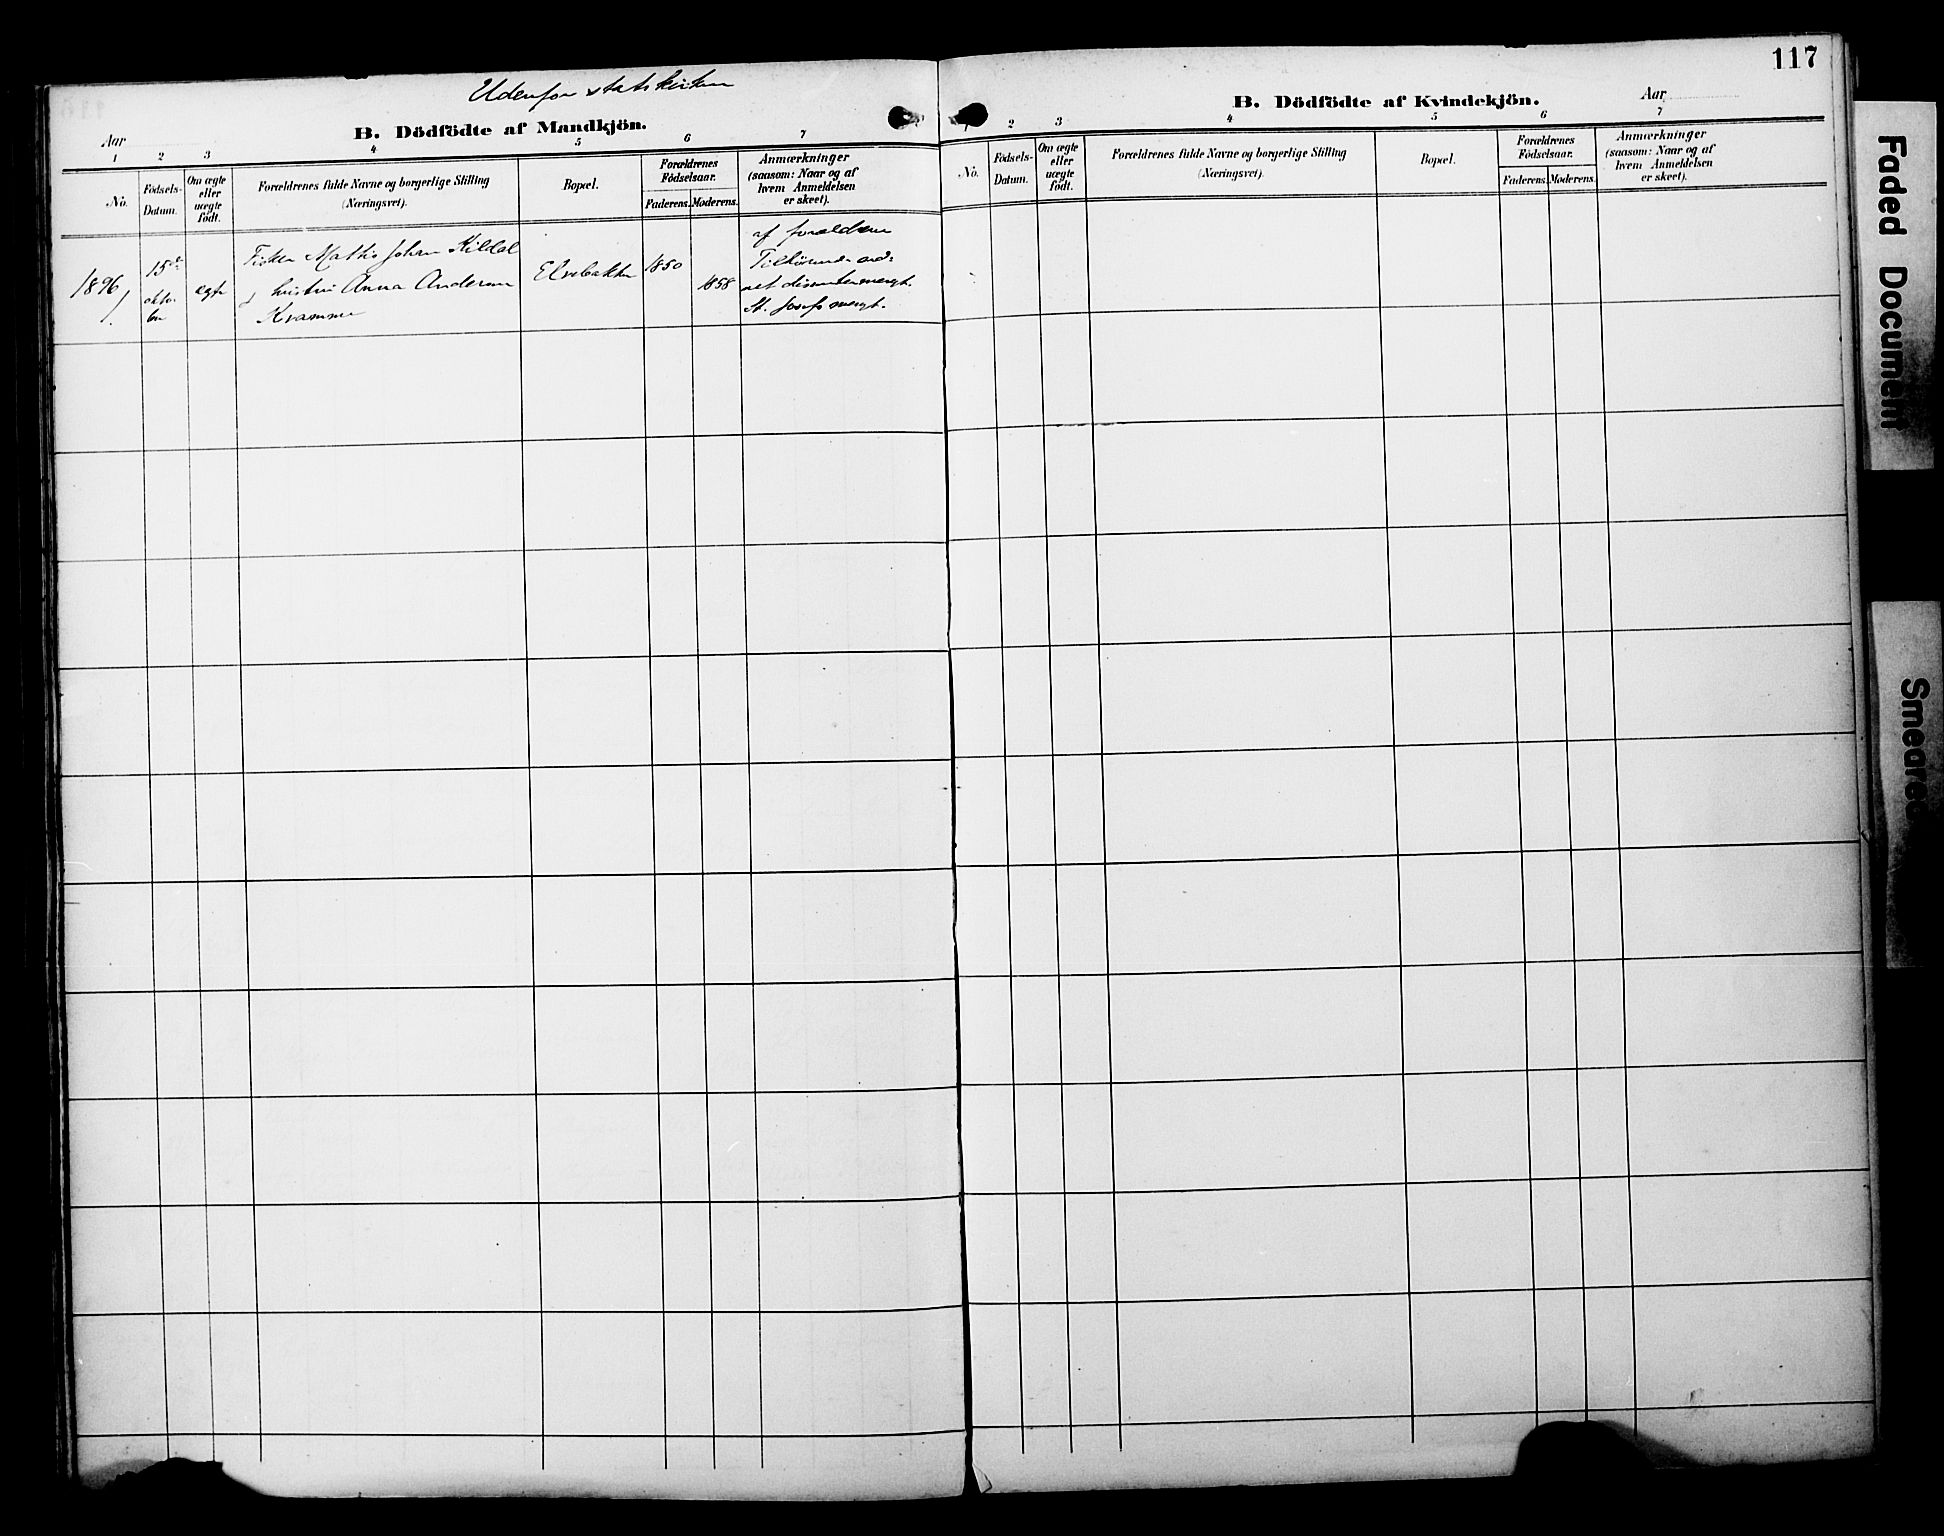 Udenfor statskirken
B. Dödfödte af Mandkjön.
Aar
1 2 3 4 5 6 7
No.
Födsels-
Datum.
Om ægte
eller
uægte
födt.
Forældrenes fulde Navne og borgerlige Stilling
(Næringsvei).
Bopæl.
Forældrenes
Födselsaar.
Faderens.
Moderens.
Anmærkninger
(saasom: Naar og af
hvem Anmeldelsen
er skeet).
1896
1
15de
okto-
ber
egte
Fisker Mathis Johan Kildal
og hustru Anna Andersen
Kvamme
Elvebakken
1850
1858
af forældrene
Tilhörende
dissentermenigt.
St. Josefs menigt.
117
B. Dödfödte af Kvindekjön.
Aar
1 2 3 4 5 6 7
No.
Födsels-
Datum.
Om ægte
eller
uægte
födt.
Forældrenes fulde Navne og borgerlige Stilling
(Næringsvei).
Bopæl.
Forældrenes
Födselsaar.
Faderens.
Moderens.
Anmærkninger
(saasom: Naar og af
hvem Anmeldelsen
er skeet).
Faded Document
Smeared